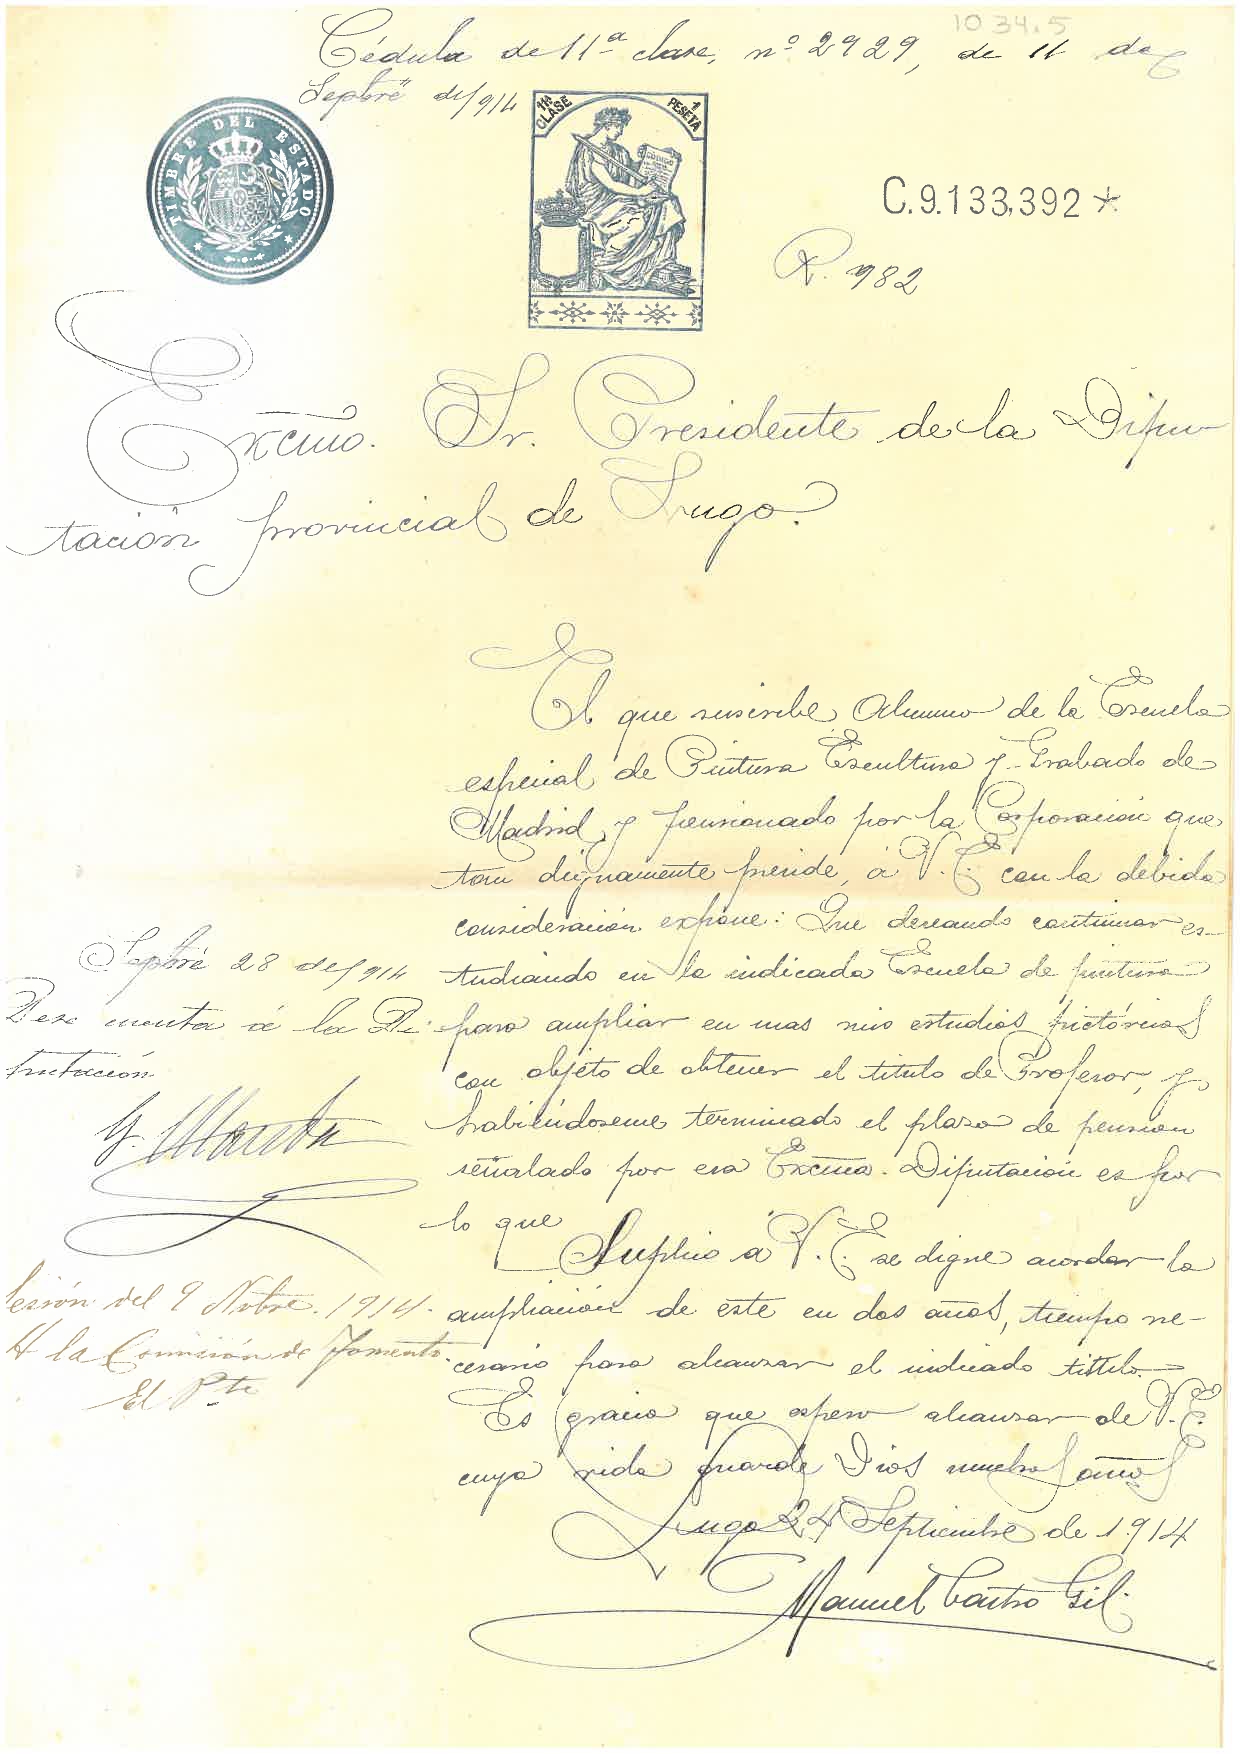 1034.5
Cédula de 11ª clase, nº 2929, de 11 de
Sepbre de/914
TIMBRE DEL ESTADO
11ª CLASE
1 PESETA
CÓDIGO
C.9.133,392*
R. 982
Excmo. Sr. Presidente de la Dipu
tación provincial de Lugo.
El que suscribe Alumno de la Escuela
especial de Pintura Escultura y Grabado de
Madrid y pensionado por la Corporación que
tam dignamente preside, á V. E. con la debida
consideración expone: Que deseando continuar es-
tudiando en la indicada Escuela de pintura
para ampliar en mas mis estudios pictóricos
con objeto de obtener el titulo de Profesor, y
habiéndoseme terminado el plaso de pension
señalado por esa Excma. Diputación es por
lo que
Suplico a V. E. se digne acordar la
ampliación de este en dos años, tiempo ne-
cesario para alcanzar el indicado tittulo.
Es gracia que espero alcanzar de V. E.
cuya vida guarde Dios muchos años
Lugo 24 Septiembre de 1914
Manuel Castro Gil.
Sepbre 28 de/914
Dese cuenta á la Di-
putación
Sesión del 9 Novbre. 1914.
A la Comisión de Fomento
El Pte